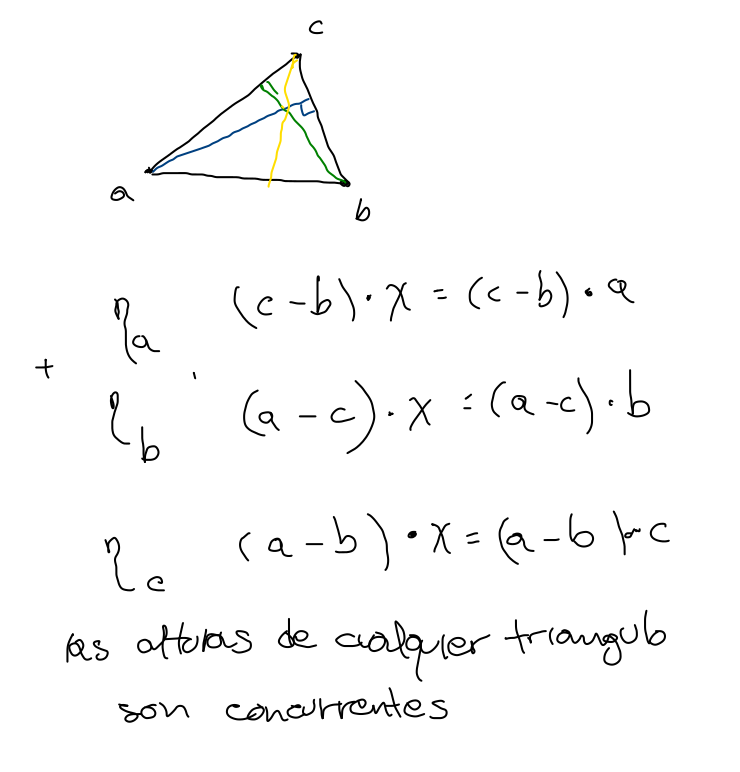 c
a
b
η_a (c-b)·x = (c-b)·a
+
η_b (a-c)·x = (a-c)·b
η_c (a-b)·x = (a-b)·c
las alturas de cualquier triangulo
son concurrentes